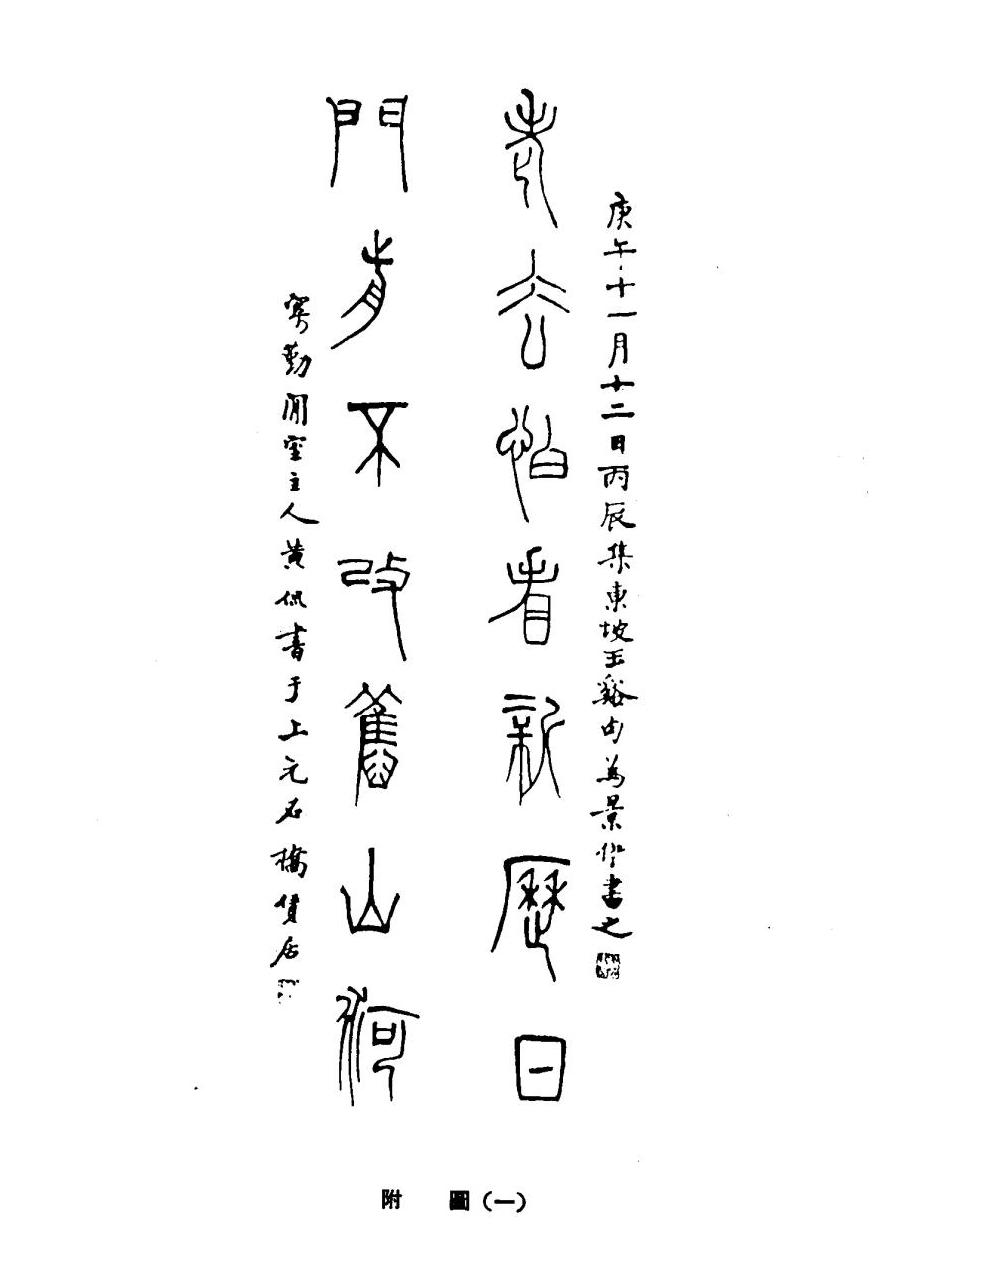 庚午十一月十二日丙辰集東坡玉谿句為景伊書之
老去怕看新歷日
門前不改舊山河
寧勤閒室主人黃侃書于上元石橋賃居
附　圖（一）